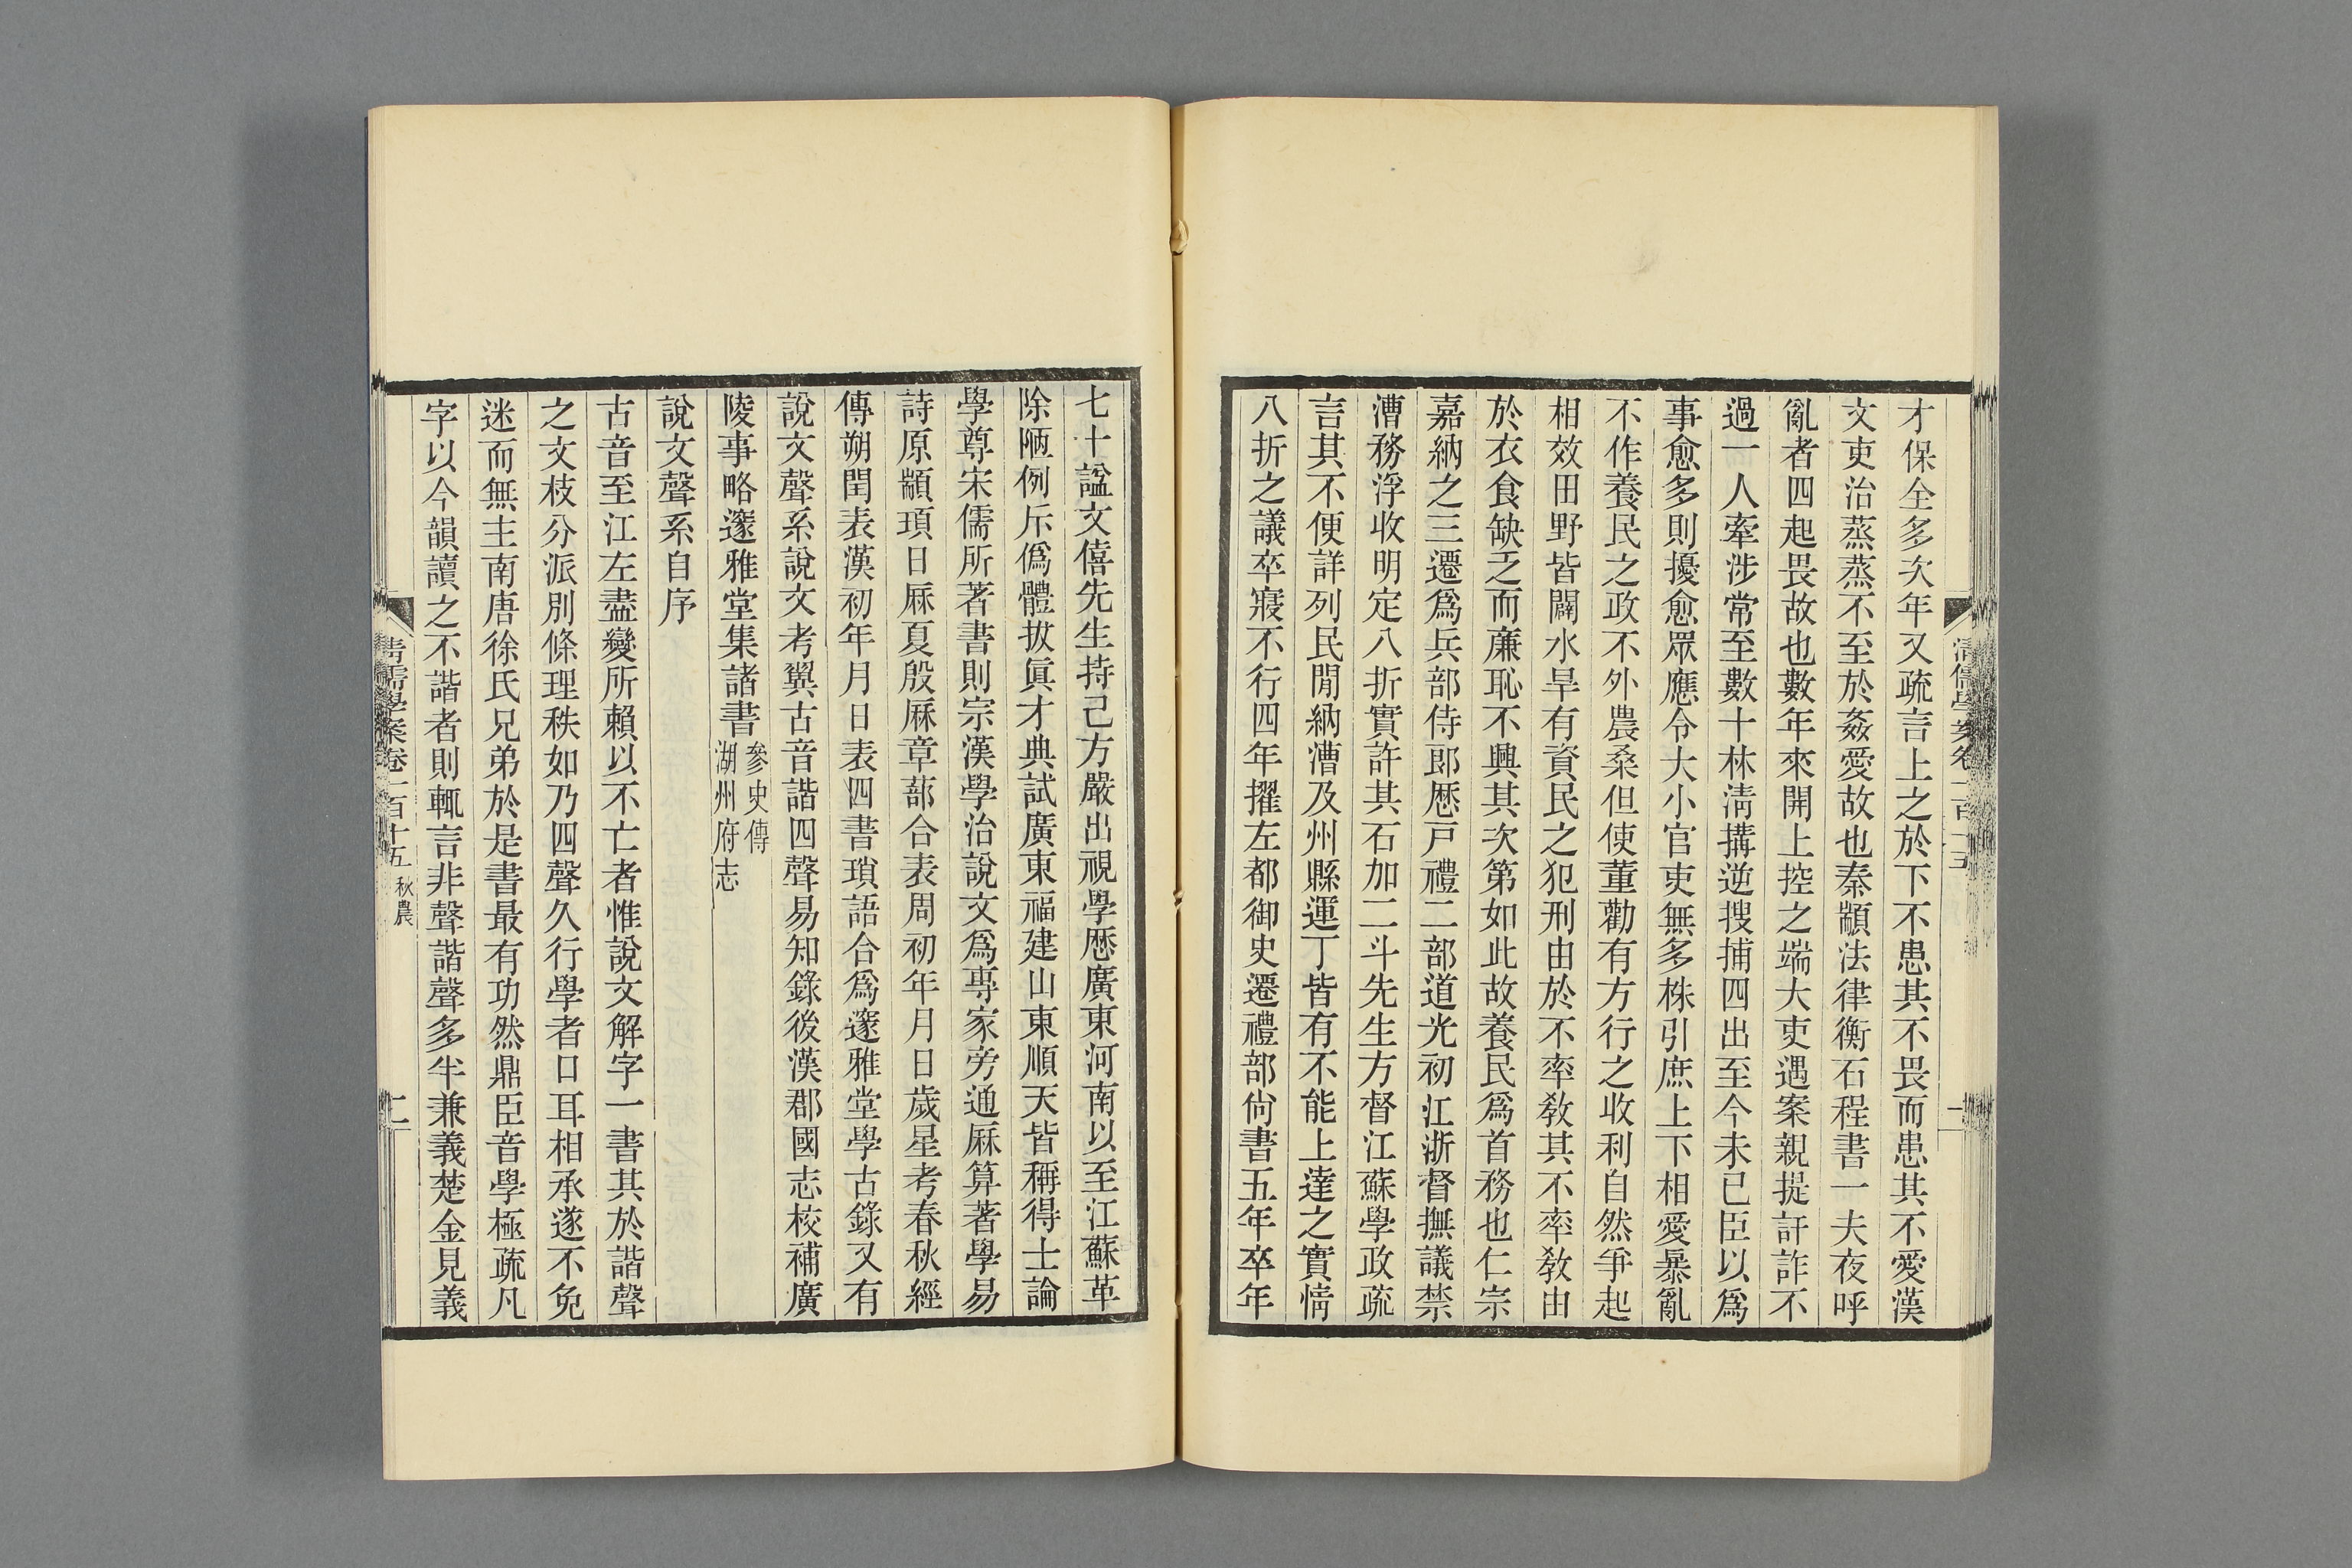 才保全多次年又疏言上之於下不患其不畏而患其不愛漢
文吏治蒸蒸不至於姦愛故也秦顓法律衡石程書一夫夜呼
亂者四起畏故也數年來開上控之端大吏遇案親提訐詐不
過一人牽涉常至數十林淸搆逆搜捕四出至今未已臣以爲
事愈多則擾愈眾應令大小官吏無多株引庶上下相愛暴亂
不作養民之政不外農桑但使董勸有方行之收利自然爭起
相效田野皆闢水旱有資民之犯刑由於不率敎其不率敎由
於衣食缺乏而廉恥不興其次第如此故養民爲首務也仁宗
嘉納之三遷爲兵部侍郎歷戸禮二部道光初江浙督撫議禁
漕務浮收明定八折實許其石加二斗先生方督江蘇學政疏
言其不便詳列民閒納漕及州縣運丁皆有不能上達之實情
八折之議卒寢不行四年擢左都御史遷禮部尙書五年卒年
七十諡文僖先生持己方嚴出視學歷廣東河南以至江蘇革
除陋例斥僞體拔眞才典試廣東福建山東順天皆稱得士論
學尊宋儒所著書則宗漢學治說文爲專家旁通厤算著學易
詩原顓頊日厤夏殷厤章蔀合表周初年月日歲星考春秋經
傳朔閏表漢初年月日表四書瑣語合爲邃雅堂學古錄又有
說文聲系說文考翼古音諧四聲易知錄後漢郡國志校補廣
陵事略邃雅堂集諸書參史傳
湖州府志
說文聲系自序
古音至江左盡變所賴以不亡者惟說文解字一書其於諧聲
之文枝分派別條理秩如乃四聲久行學者口耳相承遂不免
迷而無主南唐徐氏兄弟於是書最有功然鼎臣音學極疏凡
字以今韻讀之不諧者則輒言非聲諧聲多半兼義楚金見義
淸儒學案卷一百十五 秋農 二